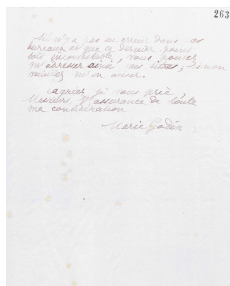 263
S'il n'y a pas eu erreur dans ces
bureaux et que ce dernier point
soit vous pouvez
m'adresser ainsi les titres, sinon
m'en aviser.
Agréez je vous prie
Messieurs, l'assurance de toute
ma considération
Marie Godin